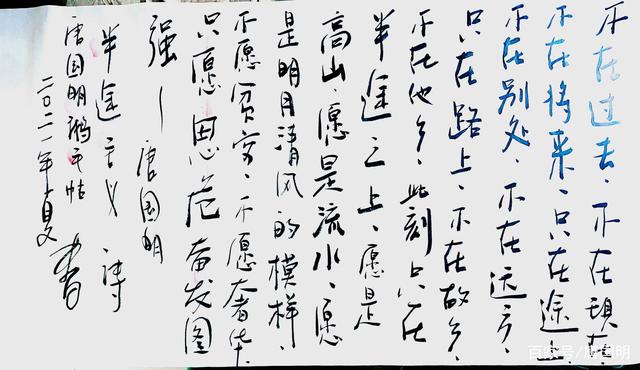 不在过去、不在现在
不在将来、只在途上
不在别处、不在远方、
只在路上、不在故乡、
不在他乡、此刻只在
半途之上、愿是
高山、愿是流水、愿
是明月清风的模样、
不愿贫穷、不愿奢华、
只愿思危奋发图
强—唐国明
半途主义 诗
唐国明鹅毛帖
二〇二一年夏 书
百家号/唐国明